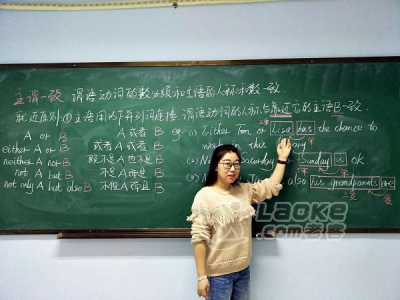 主谓一致:谓语动词的数必须和主语的人称和数一致.
就近原则:①主语用以下并列词连接,谓语动词的人称、与靠近它的主语B一致.
A or B A或者B eg: (1) Either Tom or Lisa has the chance to
either A or B A或者B win in this
neither A nor B 既不A也不B (2) Saturday Sunday is ok
not A but B 不是A而是B (3)
not only A but also B 不但A而且B also his grandparents are
LAOKE
老客